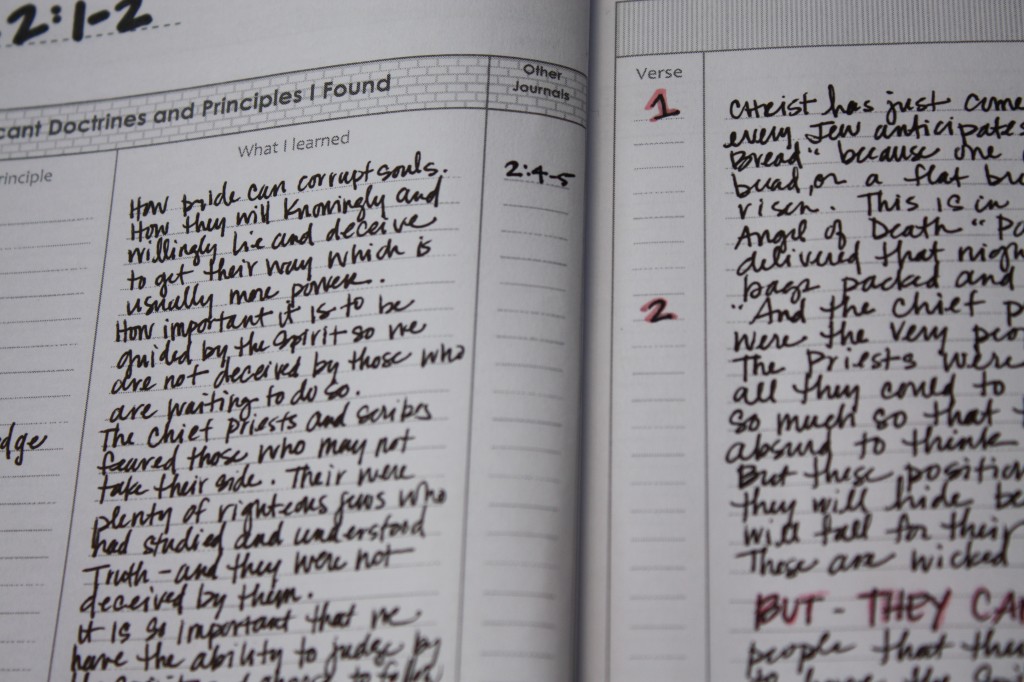 2:1-2
cant Doctrines and Principles I Found
Other
Journals
rinciple
What I learned
2:4-5
How pride can corrupt souls.
How they will knowingly and
willingly lie and deceive
to get their way which is
usually more power.
How important it is to be
guided by the Spirit so we
are not deceived by those who
are waiting to do so.
The chief priests and scribes
feared those who may not
take their side. Their were
plenty of righteous Jews who
had studied and understood
Truth - and they were not
deceived by them.
It is so important that we
have the ability to judge by
dge
Verse
1
Christ has just come
every Jew anticipates
Bread" because one
bread, or a flat br
risen. This is in
Angel of Death "Pa
delivered that nigh
bags packed and
2
"And the Chief p
were the very peo
The Priests were
all they could to
So much so that t
absurd to think
But these position
they will hide be
will fall for their
These are wicked
BUT - THEY CA
people that the